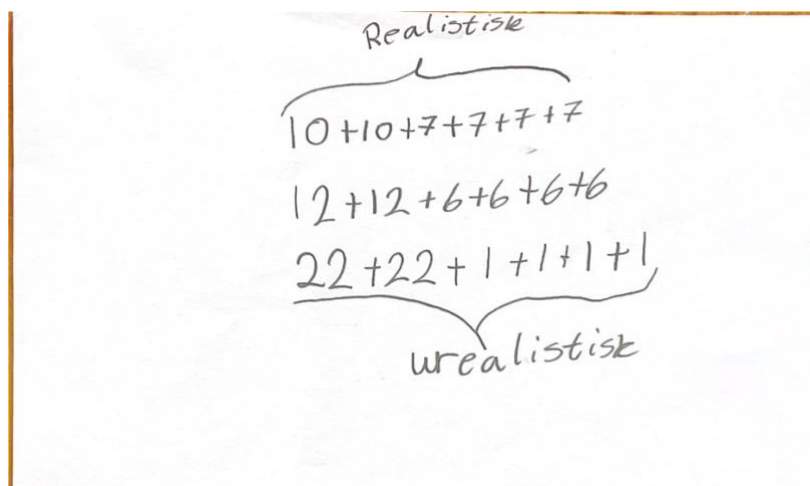 Realistisk
10+10+7+7+7+7
12+12+6+6+6+6
22+22+1+1+1+1
urealistisk